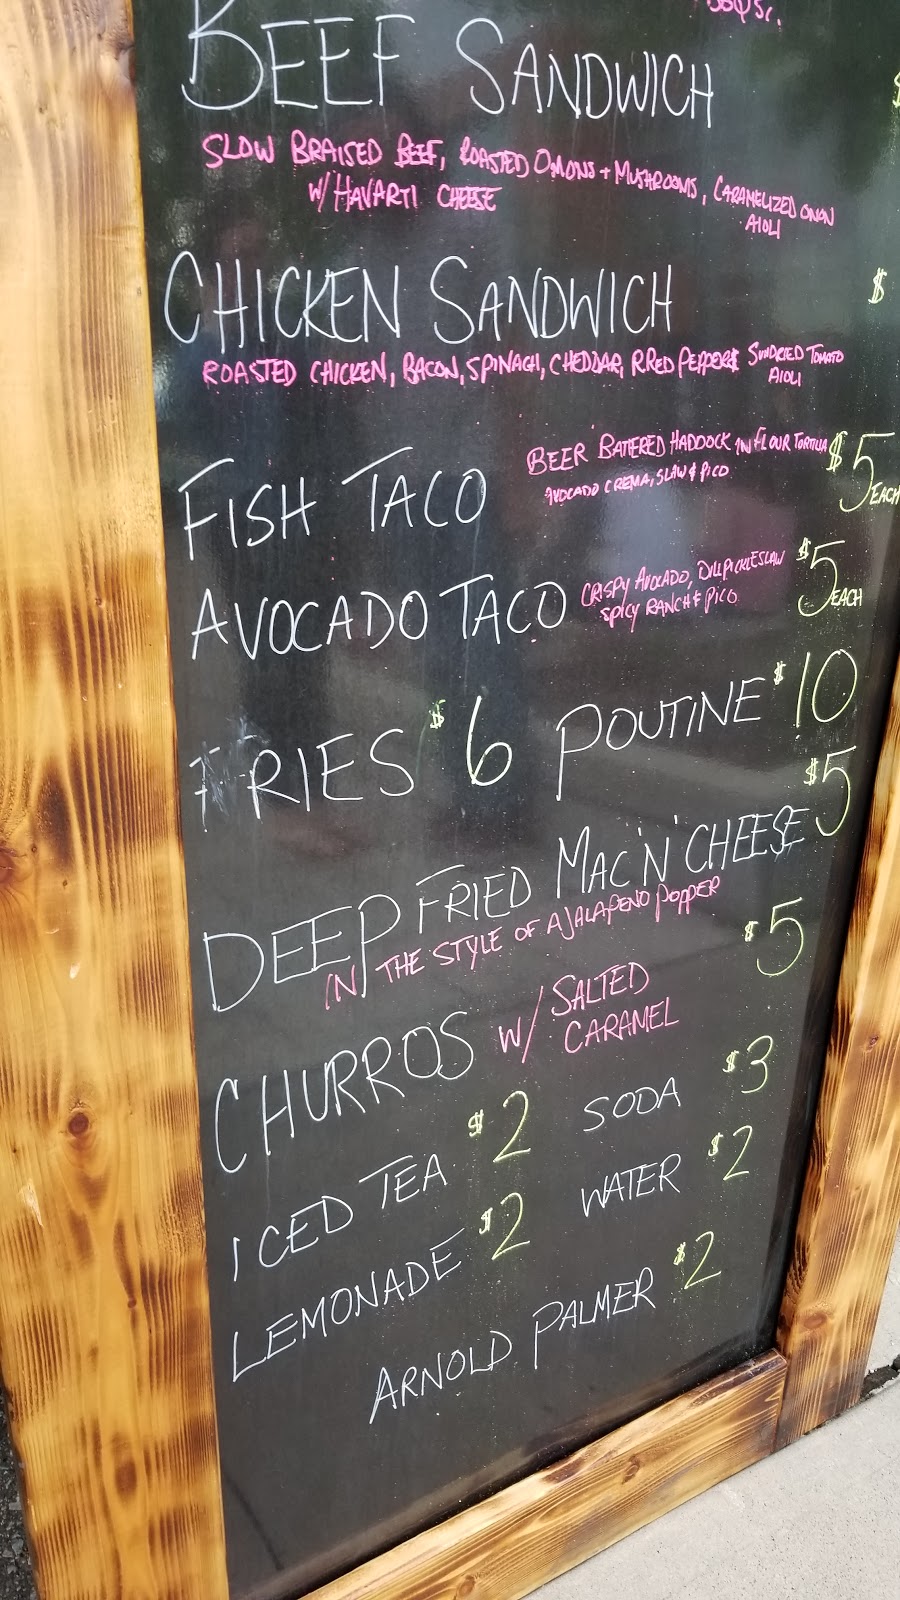 BBQ SC.
BEEF SANDWICH $
SLOW BRAISED BEEF, ROASTED ONIONS + MUSHROOMS, CARAMELIZED ONION
W/ HAVARTI CHEESE AIOLI
CHICKEN SANDWICH $
ROASTED CHICKEN, BACON, SPINACH, CHEDDAR, R.RED PEPPERS SUNDRIED TOMATO
AIOLI
FISH TACO BEER BATTERED HADDOCK IN FLOUR TORTILLA $5 EACH
AVOCADO CREMA, SLAW & PICO
AVOCADO TACO CRISPY AVOCADO, DILL PICKLE SLAW $5 EACH
SPICY RANCH & PICO
FRIES $6 POUTINE $10
DEEP FRIED MAC 'N' CHEESE $5
IN THE STYLE OF A JALAPENO POPPER
CHURROS W/ SALTED CARAMEL $5
ICED TEA $2 SODA $3
LEMONADE $2 WATER $2
ARNOLD PALMER $2